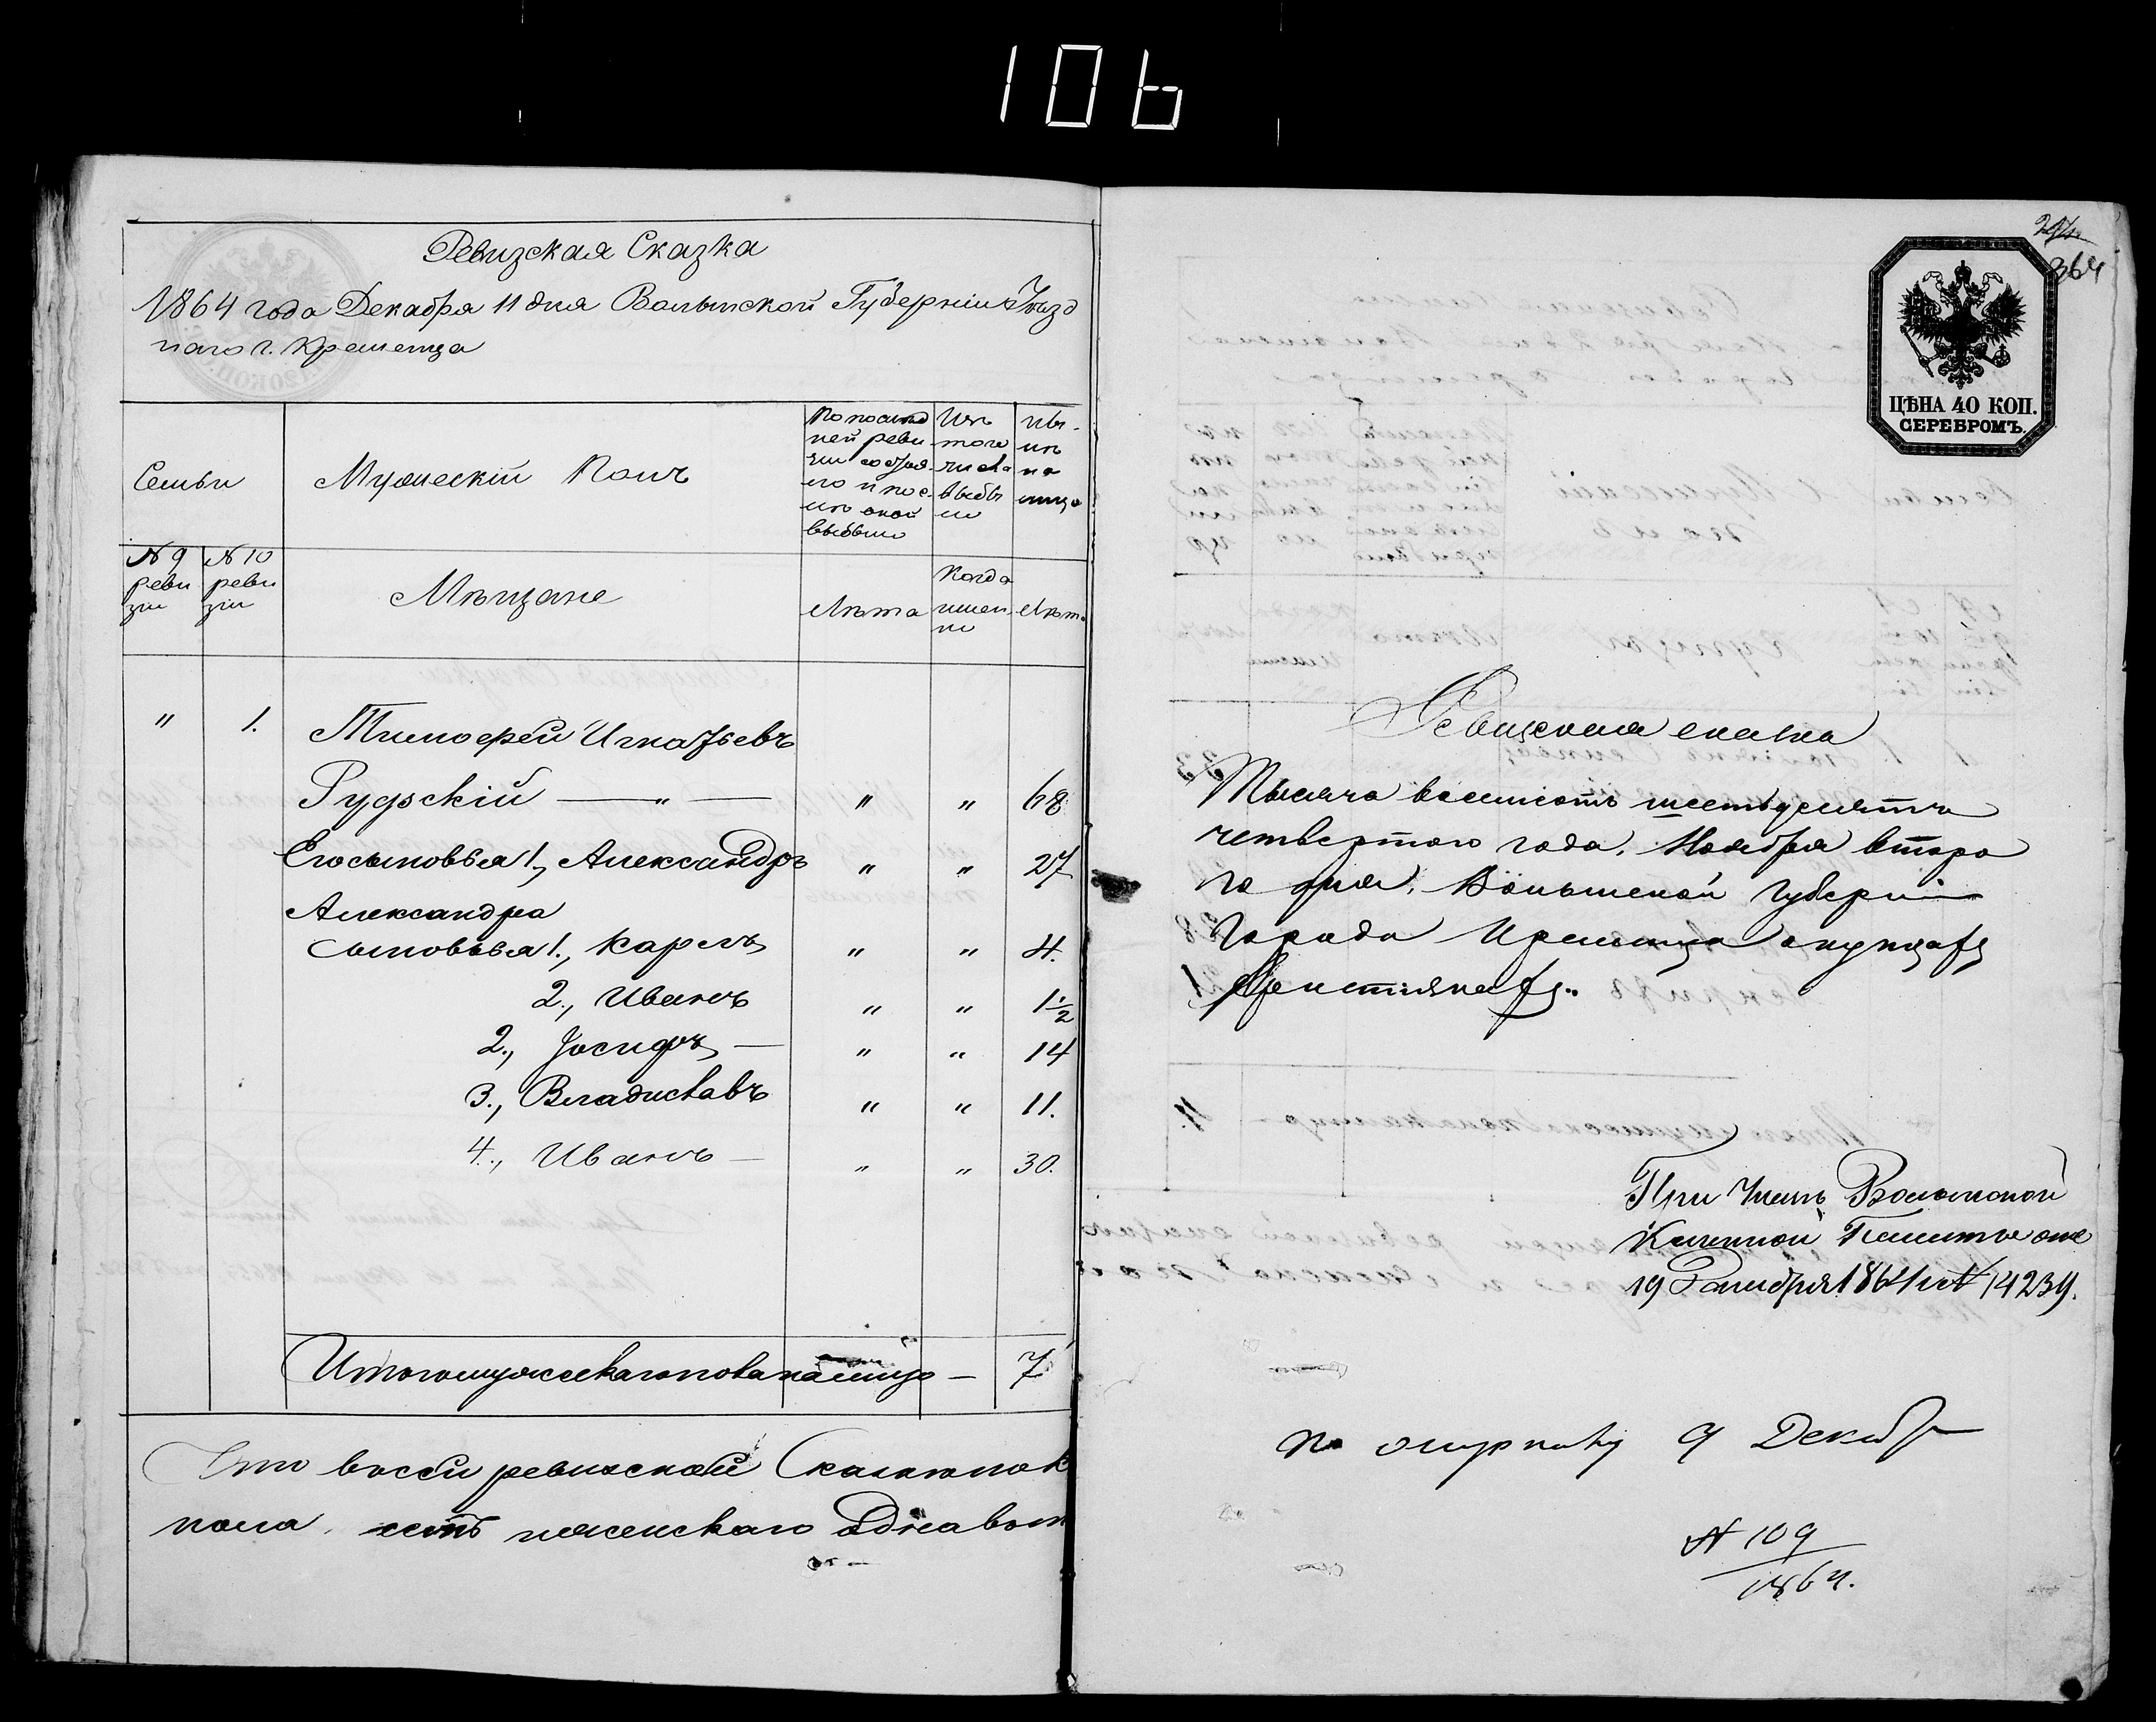 106
Ревизская Сказка
1864 года Декабря 11 дня Волынской Губерніи Уѣзд
наго г. Кременца
Семьи
Мужескій Полъ
По послѣд
ней реви
зіи состоя
ло и пос.
лѣ оной
выбыло
Изъ
того
числа
выбы
ло
Ны-
нѣ
на
лицо
№ 9
реви
зіи
№ 10
реви
зіи
Мѣщане
Лѣта
Когда
имен
но
Лѣта
" 1. Тимофей Игнатьевъ
Рудскій — " — " " 68
Его сыновья 1., Александръ " " 27
Александра
сыновья 1., Карлъ " " 4.
2., Иванъ " " 1½
2., Іосифъ — " " 14
3., Владиславъ " " 11.
4., Иванъ — " " 30.
Итого мужеска пола на лицо — 7
Что въ сей ревизской Сказкѣ
пола женскаго
364
ЦѢНА 40 КОП.
СЕРЕБРОМЪ.
Ревизская сказка
Тысяча восемсотъ шестьдесятъ
четвертого года, Ноября второ
го дня, Волынской Губерніи
Города Кременца о купцахъ
Христіянахъ.
При Указѣ Волынской
Казенной Палаты отъ
19 Декабря 1864 № 14239.
По 9 Декабр
№ 109
1864.